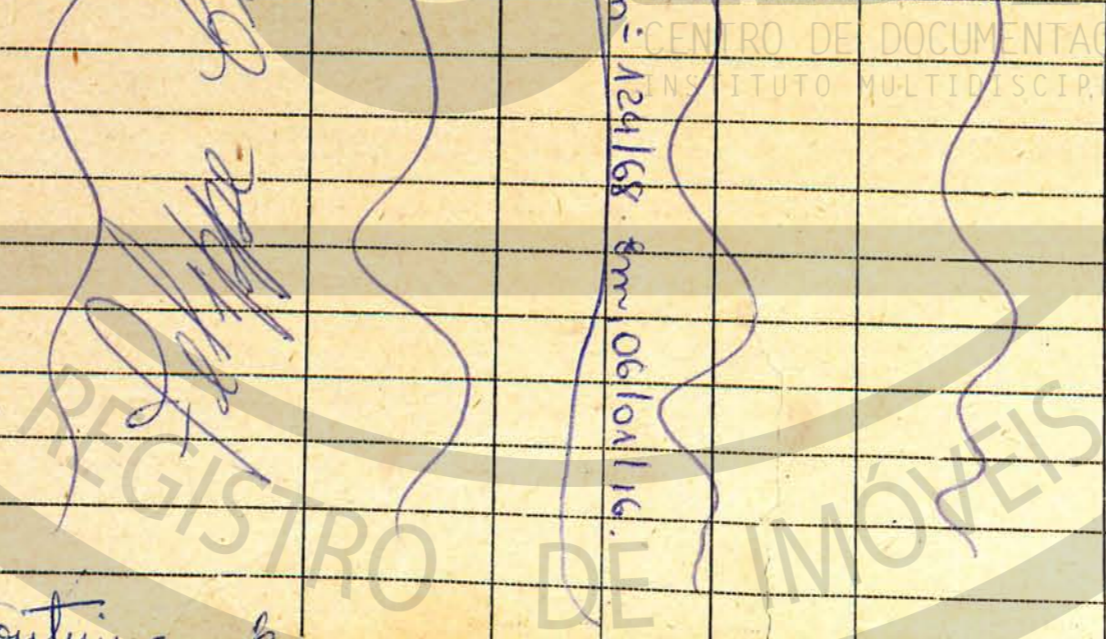 CENTRO DE DOCUMENTAÇ
INSTITUTO MULTIDISCIP
nº 124/68 Em, 06/01/16.
Felippe
REGISTRO DE IMÓVEIS